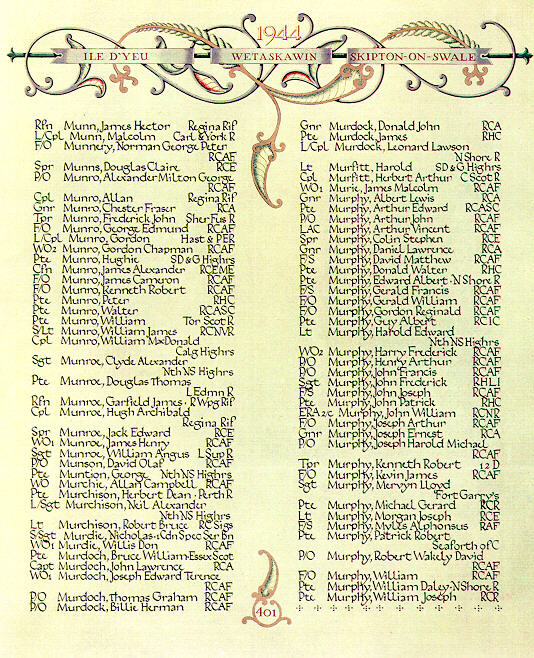 1944
ILE D'YEU WETASKAWIN SKIPTON-ON-SWALE
Rfn Munn, James Hector Regina Rif
L/Cpl Munn, Malcolm Carl & York R
F/O Munnery, Norman George Peter
RCAF
Spr Munns, Douglas Claire RCE
P/O Munro, Alexander Milton George
RCAF
Cpl Munro, Allan Regina Rif
Gnr Munro, Chester Fraser RCA
Tpr Munro, Frederick John Sher Fus R
F/O Munro, George Edmund RCAF
L/Cpl Munro, Gordon Hast & PER
WO2 Munro, Gordon Chapman RCAF
Pte Munro, Hughie SD & G Highrs
Cfn Munro, James Alexander RCEME
F/O Munro, James Cameron RCAF
F/O Munro, Kenneth Robert RCAF
Pte Munro, Peter RHC
Pte Munro, Walter RCASC
Pte Munro, William Tor Scot R
S/Lt Munro, William James RCNVR
Cpl Munro, William McDonald
Calg Highrs
Sgt Munroe, Clyde Alexander
Nth NS Highrs
Pte Munroe, Douglas Thomas
L Edmn R
Rfn Munroe, Garfield James · R Wpg Rif
Cpl Munroe, Hugh Archibald
Regina Rif
Spr Munroe, Jack Edward RCE
WO1 Munroe, James Henry RCAF
Sgt Munroe, William Angus L Sup R
P/O Munson, David Olaf RCAF
Pte Muntion, George Nth NS Highrs
WO Murchie, Allan Campbell RCAF
Pte Murchison, Herbert Dean · Perth R
L/Sgt Murchison, Neil Alexander
Nth NS Highrs
Lt Murchison, Robert Bruce RC Sigs
S/Sgt Murdie, Nicholas · 1 Cdn Spec Ser Bn
WO1 Murdie, Willis Don RCAF
Pte Murdoch, Bruce William · Essex Scot
Capt Murdoch, John Lawrence RCA
WO1 Murdoch, Joseph Edward Terence
RCAF
P/O Murdoch, Thomas Graham RCAF
P/O Murdock, Billie Herman RCAF
Gnr Murdock, Donald John RCA
Pte Murdock, James RHC
L/Cpl Murdock, Leonard Lawson
N Shore R
Lt Murfitt, Harold SD & G Highrs
Cpl Murfitt, Herbert Arthur C Scot R
WO1 Murie, James Malcolm RCAF
Gnr Murphy, Albert Lewis RCA
Pte Murphy, Arthur Edward RCASC
P/O Murphy, Arthur John RCAF
LAC Murphy, Arthur Vincent RCAF
Spr Murphy, Colin Stephen RCE
Gnr Murphy, Daniel Lawrence RCA
F/S Murphy, David Matthew RCAF
Pte Murphy, Donald Walter RHC
Pte Murphy, Edward Albert · N Shore R
F/S Murphy, Gerald Francis RCAF
F/O Murphy, Gerald William RCAF
F/O Murphy, Gordon Reginald RCAF
Pte Murphy, Guy Albert RCIC
Lt Murphy, Harold Edward
Nth NS Highrs
WO2 Murphy, Harry Frederick RCAF
P/O Murphy, Henry Arthur RCAF
P/O Murphy, John Francis RCAF
Sgt Murphy, John Frederick RHLI
F/S Murphy, John Joseph RCAF
Pte Murphy, John Patrick RHC
ERA2c Murphy, John William RCNR
F/O Murphy, Joseph Arthur RCAF
Gnr Murphy, Joseph Ernest RCA
P/O Murphy, Joseph Harold Michael
RCAF
Tpr Murphy, Kenneth Robert 12 D
F/O Murphy, Kevin James RCAF
Sgt Murphy, Mervyn Lloyd
Fort Garry's
Pte Murphy, Michael Gerard RCR
Lt Murphy, Morgan Joseph RCE
F/S Murphy, Mylls Alphonsus RAF
Pte Murphy, Patrick Robert
Seaforth of C
P/O Murphy, Robert Wakely David
RCAF
F/O Murphy, William RCAF
Pte Murphy, William Daley · N Shore R
Pte Murphy, William Joseph RCR
401